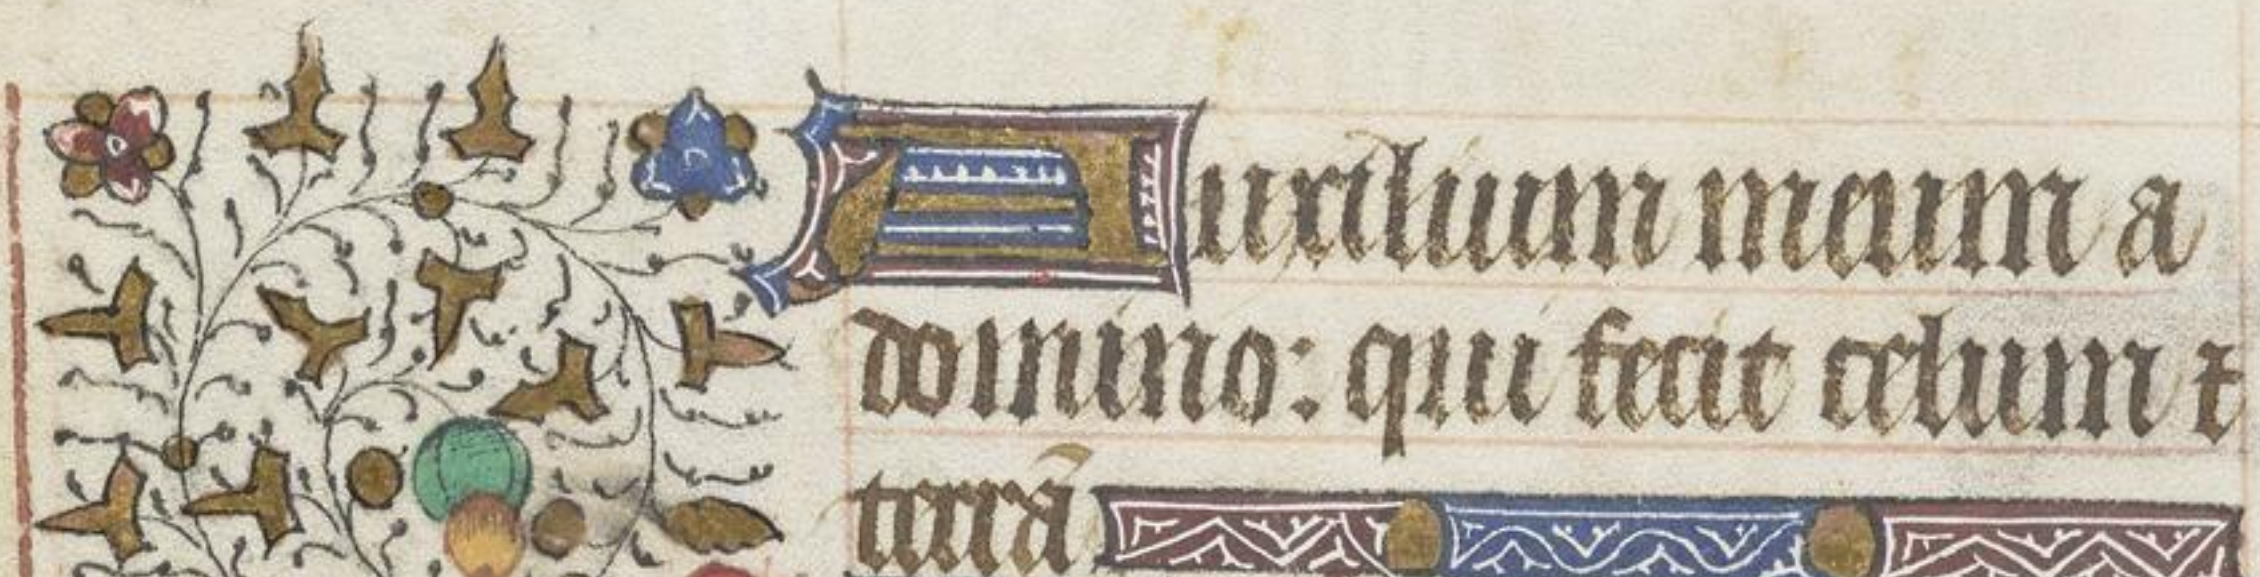 Auxilium meum a
domino: qui fecit celum ⁊
terrã